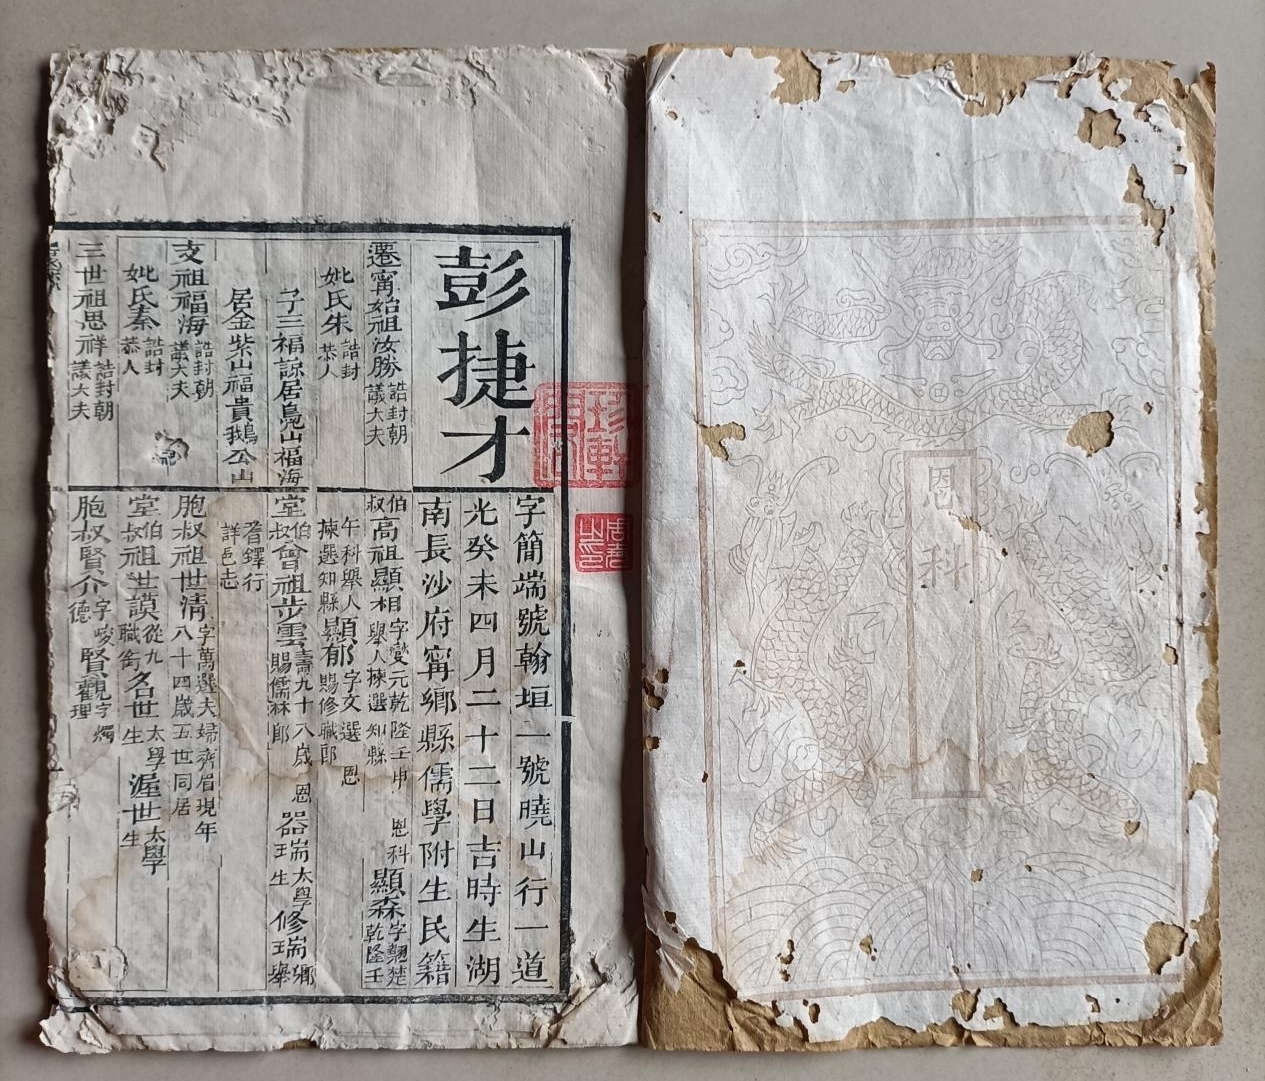 恩科
彭捷才
字簡端號翰垣一號曉山行一道
光癸未四月二十二日吉時生湖
南長沙府甯鄉縣儒學附生民籍
遷甯始祖汝勝誥封朝議大夫
妣氏朱誥封恭人
子三福諒居鳧山福海
居金紫山福貴鵝公山
支祖福海誥封朝議大夫
妣氏秦誥封恭人
三世祖思祥誥封朝議大夫
伯叔高祖顯相字變元乾隆壬申恩科舉人揀選知縣顯森字翹楚乾隆壬
午科舉人揀選知縣顯郁字文選恩賜修職郎
堂伯叔曾祖步雲壽九十八歲恩賜儒林郎器瑞太學生修瑞鄉舉
耆鐸行詳邑志
胞叔祖世清字萬選夫婦齊眉現年八十四歲五世同居
堂伯叔祖世謨從九職銜名世太學生渥世太學生
胞叔賢介字峻德賢觀字燭理